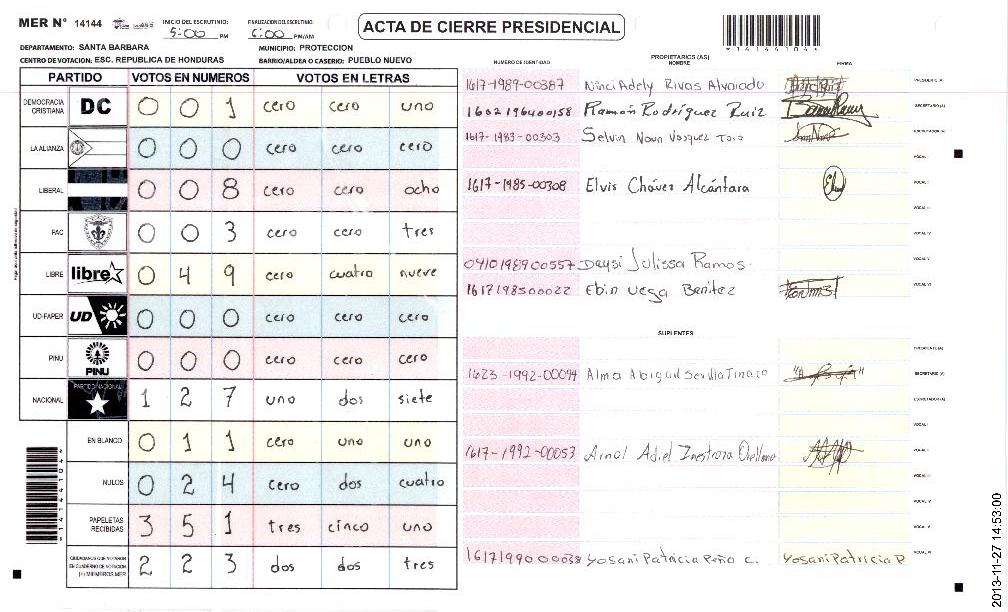 MER N° 14144
INICIO DEL ESCRUTINIO: 5:00 PM
FINALIZACION DEL ESCRUTINIO: 6:00 PM/AM
ACTA DE CIERRE PRESIDENCIAL
*14144104*
DEPARTAMENTO: SANTA BARBARA
MUNICIPIO: PROTECCION
CENTRO DE VOTACION: ESC. REPUBLICA DE HONDURAS
BARRIO/ALDEA O CASERIO: PUEBLO NUEVO
PARTIDO VOTOS EN NUMEROS VOTOS EN LETRAS
DEMOCRACIA CRISTIANA DC 0 0 1 cero cero uno
LA ALIANZA 0 0 0 cero cero cero
LIBERAL 0 0 8 cero cero ocho
PAC 0 0 3 cero cero tres
LIBRE libre 0 4 9 cero cuatro nueve
UD-FAPER UD 0 0 0 cero cero cero
PINU PINU 0 0 0 cero cero cero
NACIONAL PARTIDO NACIONAL 1 2 7 uno dos siete
EN BLANCO 0 1 1 cero uno uno
NULOS 0 2 4 cero dos cuatro
PAPELETAS RECIBIDAS 3 5 1 tres cinco uno
CIUDADANOS QUE VOTARON EN CUADERNO DE VOTACION (+) MIEMBROS MER 2 2 3 dos dos tres
PROPIETARIOS (AS)
NUMERO DE IDENTIDAD NOMBRE FIRMA
1617-1989-00387 Adely Rivas Alvarado PRESIDENTE (A)
1602196400158 Ramón Rodríguez Ruiz SECRETARIO (A)
1617-1983-00303 Selvin Vasquez ESCRUTADOR (A)
VOCAL I
1617-1985-00308 Elvis Chávez Alcántara VOCAL II
VOCAL III
VOCAL IV
0410198900557 Daysi Julissa Ramos. VOCAL V
1617198500022 Ebin Vega Benitez VOCAL VI
SUPLENTES
PRESIDENTE (A)
1623-1992-00094 Alma Abigail SECRETARIO (A)
ESCRUTADOR (A)
VOCAL I
1617-1992-00053 Arnol Adiel Inestroza Orellana
VOCAL III
VOCAL IV
VOCAL V
1617199000038 Yosani Patricia Peña C. Yosani Patricia P VOCAL VI
2013-11-27 14:53:00